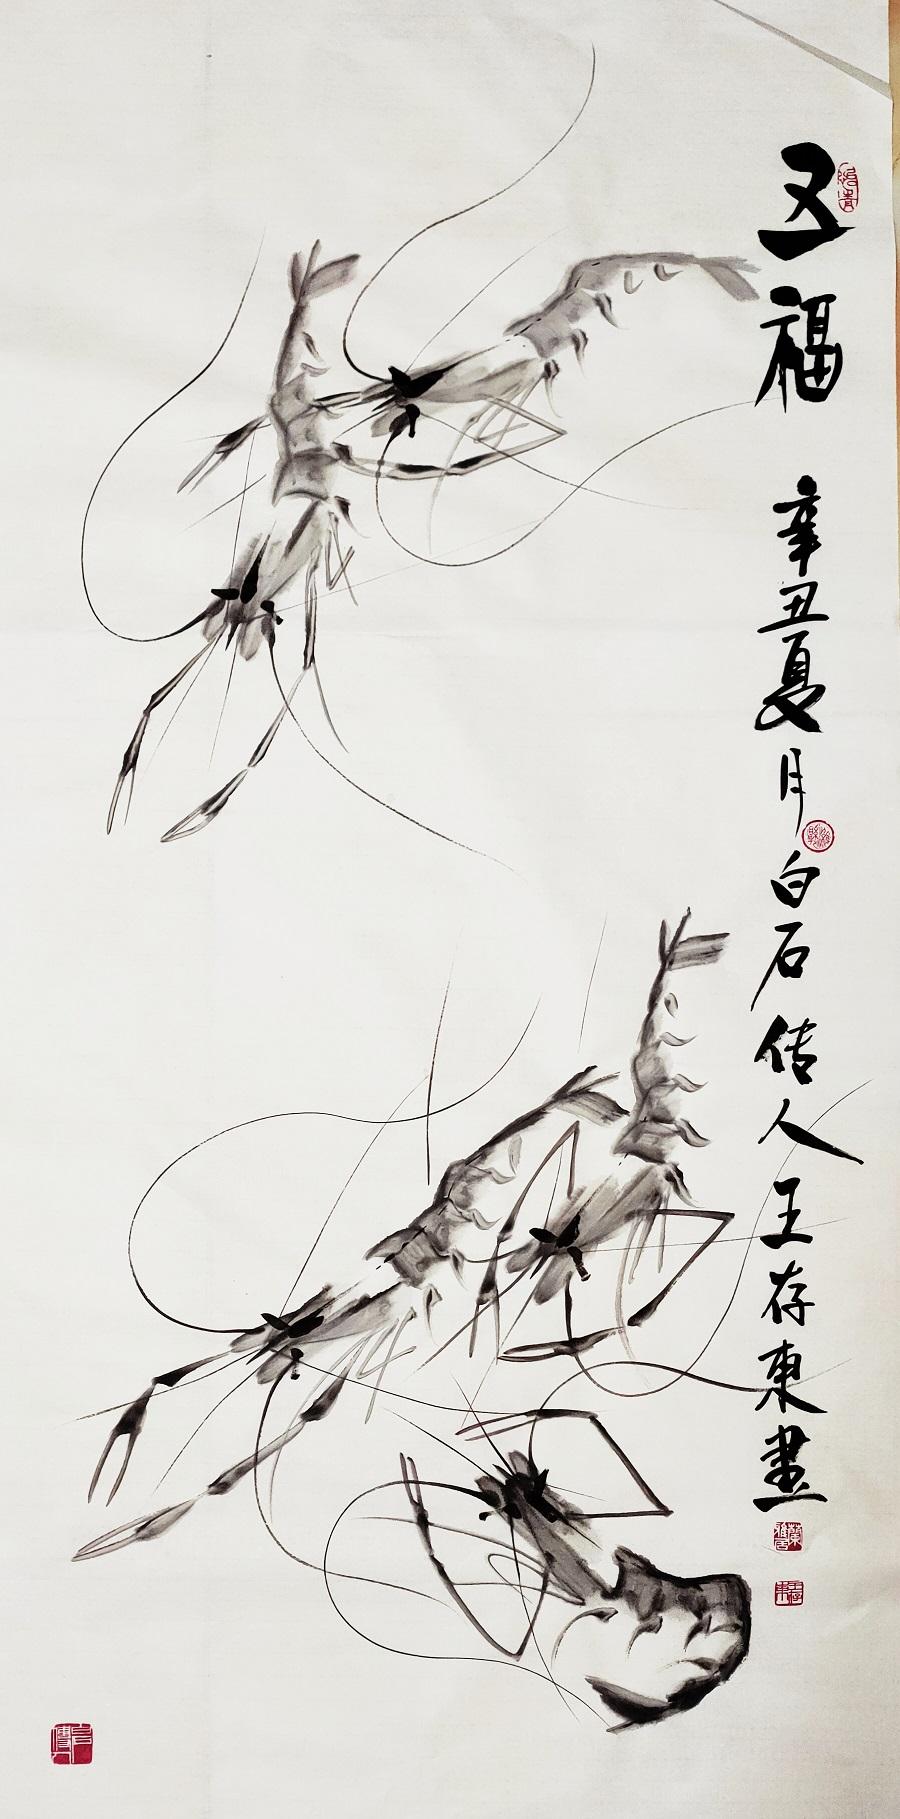 五福
辛丑夏月白石传人王存東畫